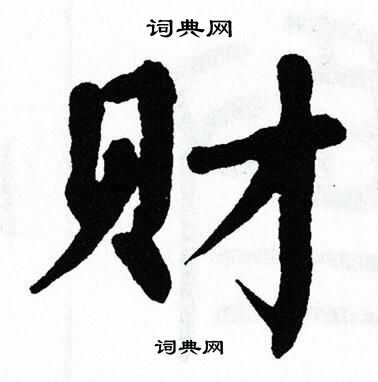 词典网
财
词典网